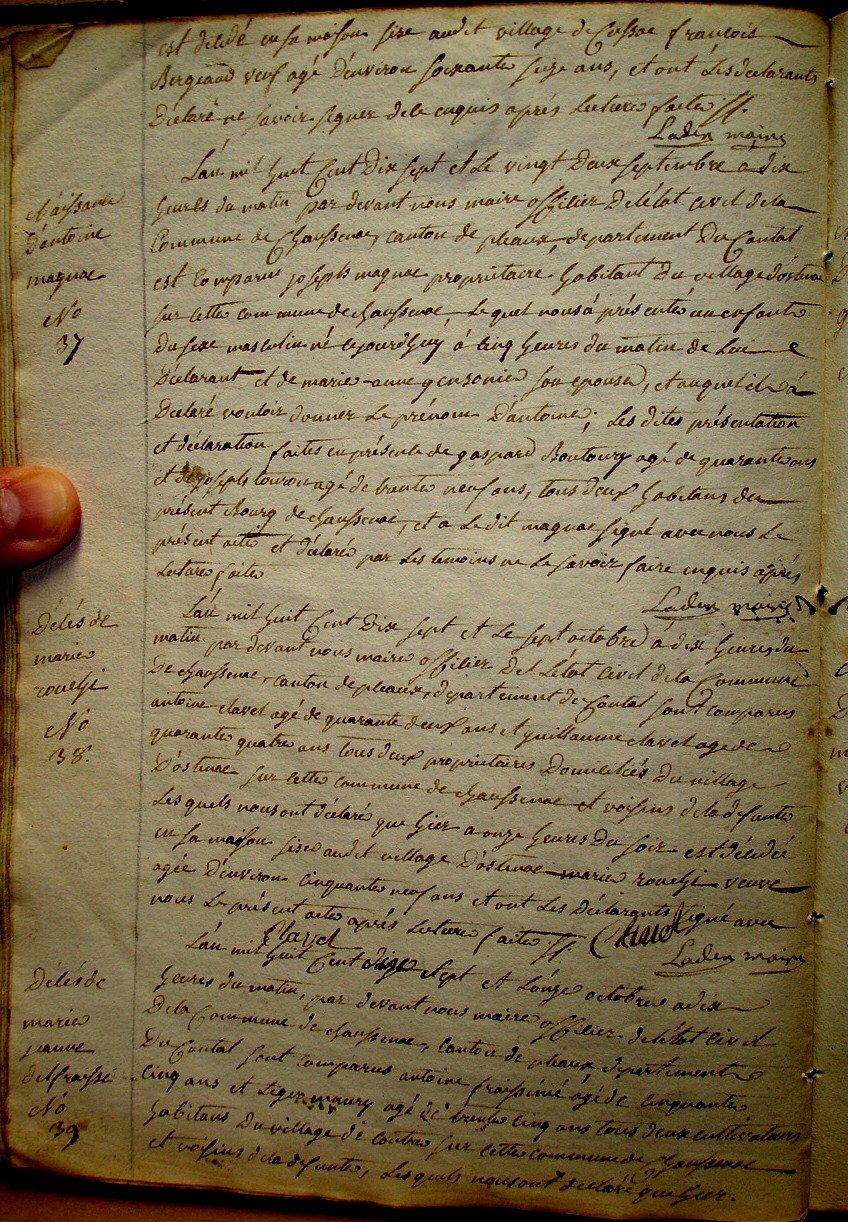 est décédé en sa maison sise audit village de Cussac françois
Bergeaud veuf agé d'environ soixante seize ans, et ont les déclarants
Déclaré ne savoir signer de ce enquis après Lecture faite //.
Laden maire
Naissance
D'antoine
magnac
No
37
L'an mil huit Cent Dix sept et le vingt Deux septembre a dix
heures du matin par devant nous maire officier De l'état civil de la
Commune de Chaussenac, canton de pleaux, département Du Cantal
est Comparu joseph magnac propriétaire habitant Du village d'ostenac
sur cette commune de chaussenac, Le quel nous a présenté un enfant
Du sexe masculin né cejourd'huy à Cinq heures du matin de Lui
Déclarant et de marie-anne son epouse, et auquel il a
Déclaré vouloir donner Le prénom D'antoine; Les dites présentation
et déclaration faites en présence de gaspard Boutoury agé de quarante ans
et de joseph agé de trente neuf ans, tous deux habitans du
présent Bourg de chaussenac, et a Le dit magnac signé avec nous Le
présent acte et déclaré par Les temoins ne Le savoir faire enquis après
Lecture faite
Laden maire
Décès de
marie
rouchi
No
38.
L'an mil huit Cent Dix sept et Le sept octobre a dix heures du
matin par devant nous maire officier De L'état Civil de la Commune
De chaussenac, canton de pleaux, département de Cantal sont comparus
antoine clavel agé de quarante deux ans et guillaume clavel agé de
quarante quatre ans tous deux propriétaires Domiciliés Du village
D'ostenac sur cette commune de chaussenac et voisins de la defunte
Les quels nous ont déclaré que hier a onze heures Du soir est décédée
en sa maison sise audit village D'ostenac marie rouchi veuve
agée D'environ cinquante neuf ans et ont Les Déclarants signé avec
nous Le présent acte après Lecture faite //.
Clavel Clavel
Laden maire
Décès de
marie
jeanne
delfraissi
No
39
L'an mil huit Cent dix Sept et L'onze octobre a dix
heures du matin, par devant nous maire officier de l'état civil
De la Commune de chaussenac, canton de pleaux departement
Du Cantal sont comparus antoine fraissinié agé de cinquante
cinq ans et Leger maury agé de trente cinq ans tous deux cultivateurs
habitans Du village de Contre sur cette commune de Chaussenac
et voisins de la defunte, Les quels nous ont declaré que hier.